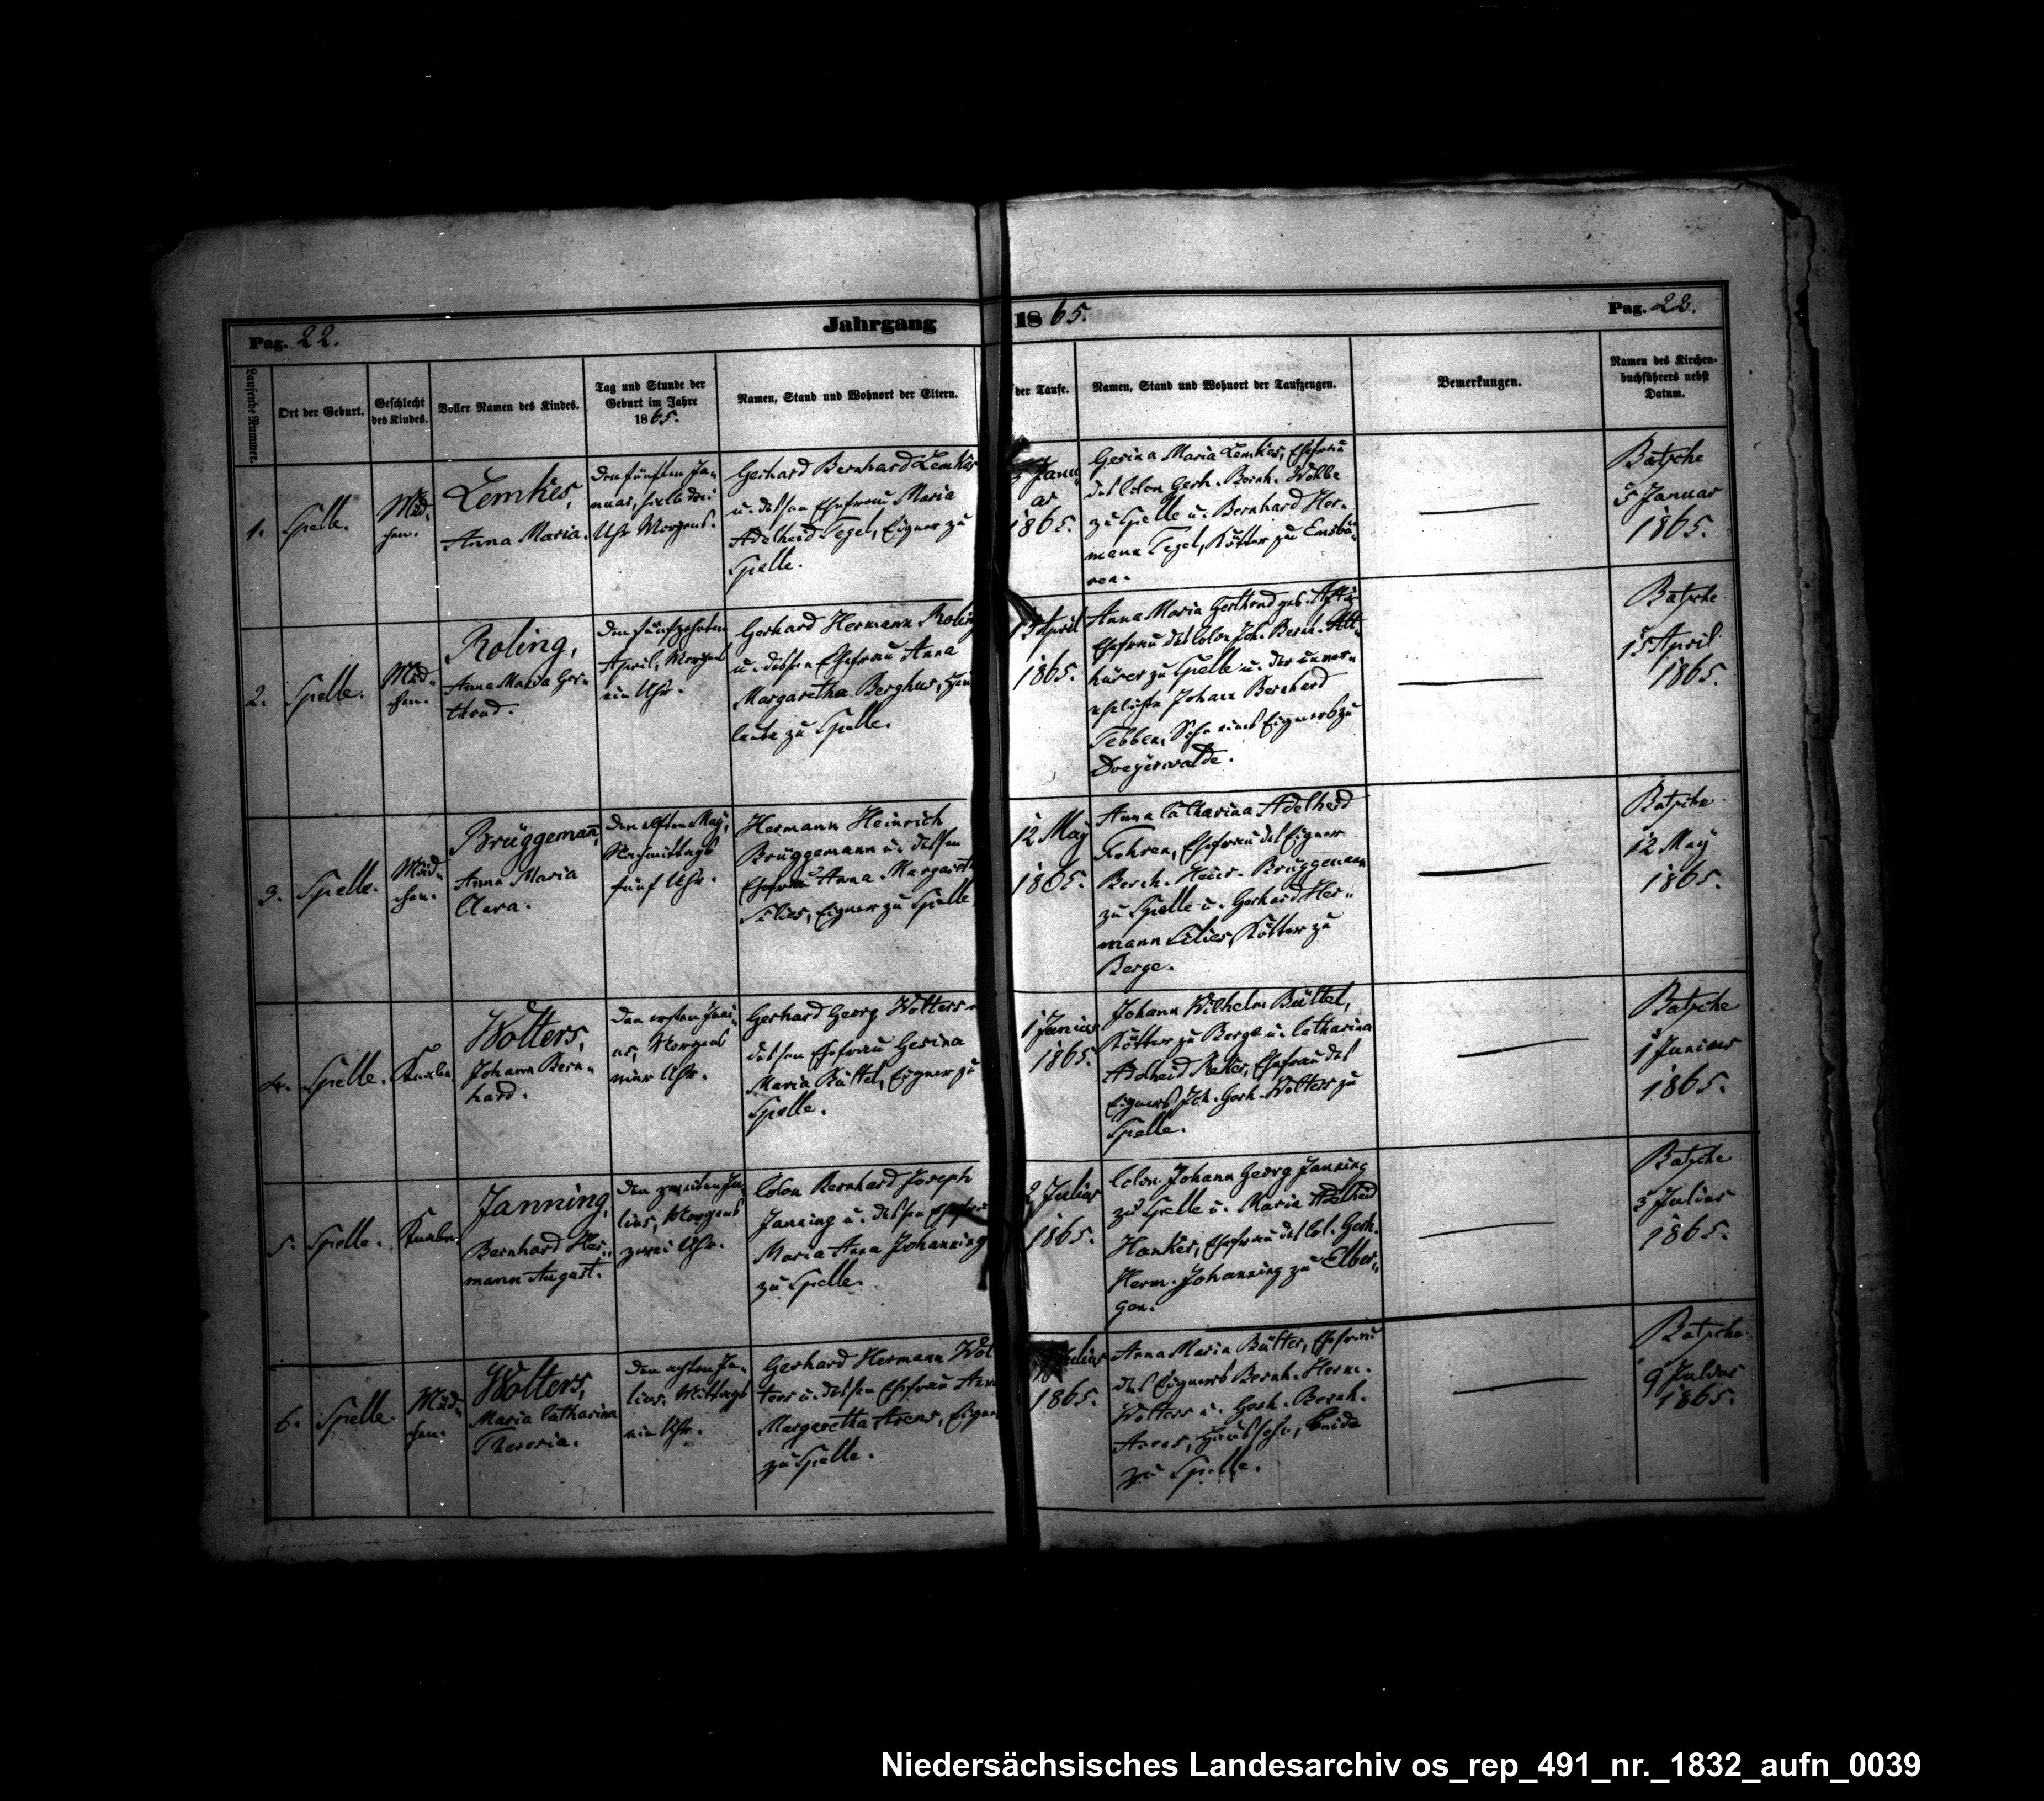 Pag. 22.
Jahrgang 1865.
Pag. 22.
Laufende Nummer.
Ort der Geburt.
Geschlecht
des Kindes.
Voller Namen des Kindes.
Tag und Stunde der
Geburt im Jahre
1865.
Namen, Stand und Wohnort der Eltern.
der Taufe.
Namen, Stand und Wohnort der Taufzeugen.
Bemerkungen.
Namen des Kirchen-
buchführers nebst
Datum.
1.
Spelle.
Mäd-
chen.
Lemkes,
Anna Maria.
Den fünften Ja-
nuar, halb drei
Uhr Morgens.
Gerhard Bernhard Lemkes
u. dessen Ehefrau Maria
Adelheid Tegel, Eigner zu
Spelle.
5 Janu
ar
1865.
Gesina Maria Lemkes, Ehefrau
des Colon Gerh. Bernh. Wobbe
zu Spelle u. Bernhard Her-
mann Tegel, Kötter zu Emsbü-
ren.
Batsche
5 Januar
1865.
2.
Spelle.
Mäd-
chen.
Roling,
Anna Maria Ger-
thrud.
Den fünfzehnten
April, Morgens
ein Uhr.
Gerhard Hermann Roling
u. dessen Ehefrau Anna
Margaretha Berghus, Heu
leute zu Spelle.
15 April
1865.
Anna Maria Gerthrud geb.
Ehefrau des Colon Joh. Bernh. Alt-
hüser zu Spelle u. der unver-
ehelichte Johann Bernhard
Tebben, Sohn eines Eigners zu
Dreyerwalde.
Batsche
15 April
1865.
3.
Spelle.
Mäd-
chen.
Brüggemann,
Anna Maria
Clara.
Den elften May,
Nachmittags
fünf Uhr.
Hermann Heinrich
Brüggemann u. dessen
Ehefrau Anna Margaretha
Silies, Eigner zu Spelle.
12 May
1865.
Anna Catharina Adelheid
Fohren, Ehefrau des Eigner
Bernh. Heinr. Brüggemann
zu Spelle u. Gerhard Her-
mann Silies Kötter zu
Berge.
Batsche
12 May
1865.
4.
Spelle.
Knabe.
Wolters,
Johann Bern-
hard.
Den ersten Juni-
us, Morgens
vier Uhr.
Gerhard Georg Wolters u.
dessen Ehefrau Gesina
Maria Bültel, Eigner zu
Spelle.
1 Junius
1865.
Johann Wilhelm Bültel,
Kötter zu Berge u. Catharina
Adelheid Rekers, Ehefrau des
Eigners Joh. Gerh. Wolters zu
Spelle.
Batsche
1 Junius
1865.
5.
Spelle.
Knabe.
Janning,
Bernhard Her-
mann August.
Den zweiten Ju-
lius, Morgens
zwei Uhr.
Colon Bernhard Joseph
Janning u. dessen Ehefrau
Maria Anna Johanning
zu Spelle.
2 Julius
1865.
Colon Johann Georg Janning
zu Spelle u. Maria Adelheid
Hankes, Ehefrau des Col. Gerh.
Herm. Johanning zu Elber-
gen.
Batsche
3 Julius
1865.
6.
Spelle.
Mäd-
chen.
Wolters,
Maria Catharina
Theresia.
Den achten Ju-
lius, Mittags
ein Uhr.
Gerhard Hermann Wol
ters u. dessen Ehefrau Anna
Margaretha Arens, Eigner
zu Spelle.
Julius
1865.
Anna Maria Bülter, Ehefrau
des Eigners Bernh. Herm.
Wolters u. Gerh. Bernh.
Arens, Haussohn, beide
zu Spelle.
Batsche
9 Julius
1865.
Niedersächsisches Landesarchiv os_rep_491_nr._1832_aufn_0039